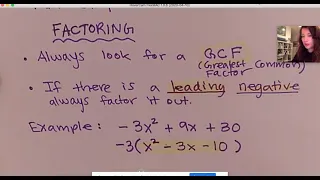 FACTORING
• Always look for a GCF
(Greatest Common
Factor)
• If there is a leading negative
always factor it out.
Example: -3x² + 9x + 30
-3(x² - 3x - 10)